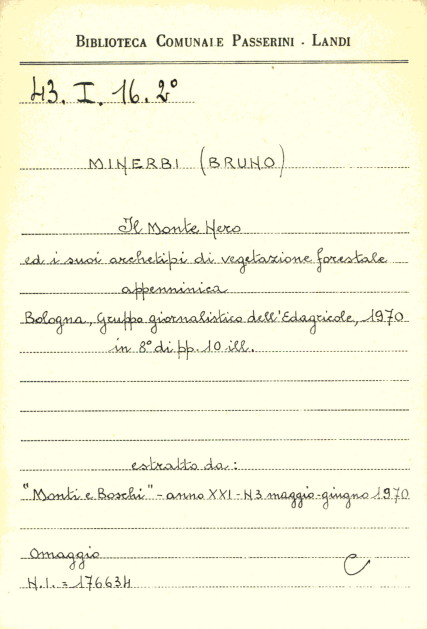 BIBLIOTECA COMUNALE PASSERINI - LANDI
43. I. 16. 2°
MINERBI (BRUNO)
Il Monte Nero
ed i suoi archetipi di vegetazione forestale
appenninica
Bologna, Gruppo giornalistico dell'Edagricole, 1970
in 8° di pp. 10 ill.
estratto da:
"Monti e Boschi" - anno XXI - N3 maggio-giugno 1970
Omaggio
C
N.I. = 176634